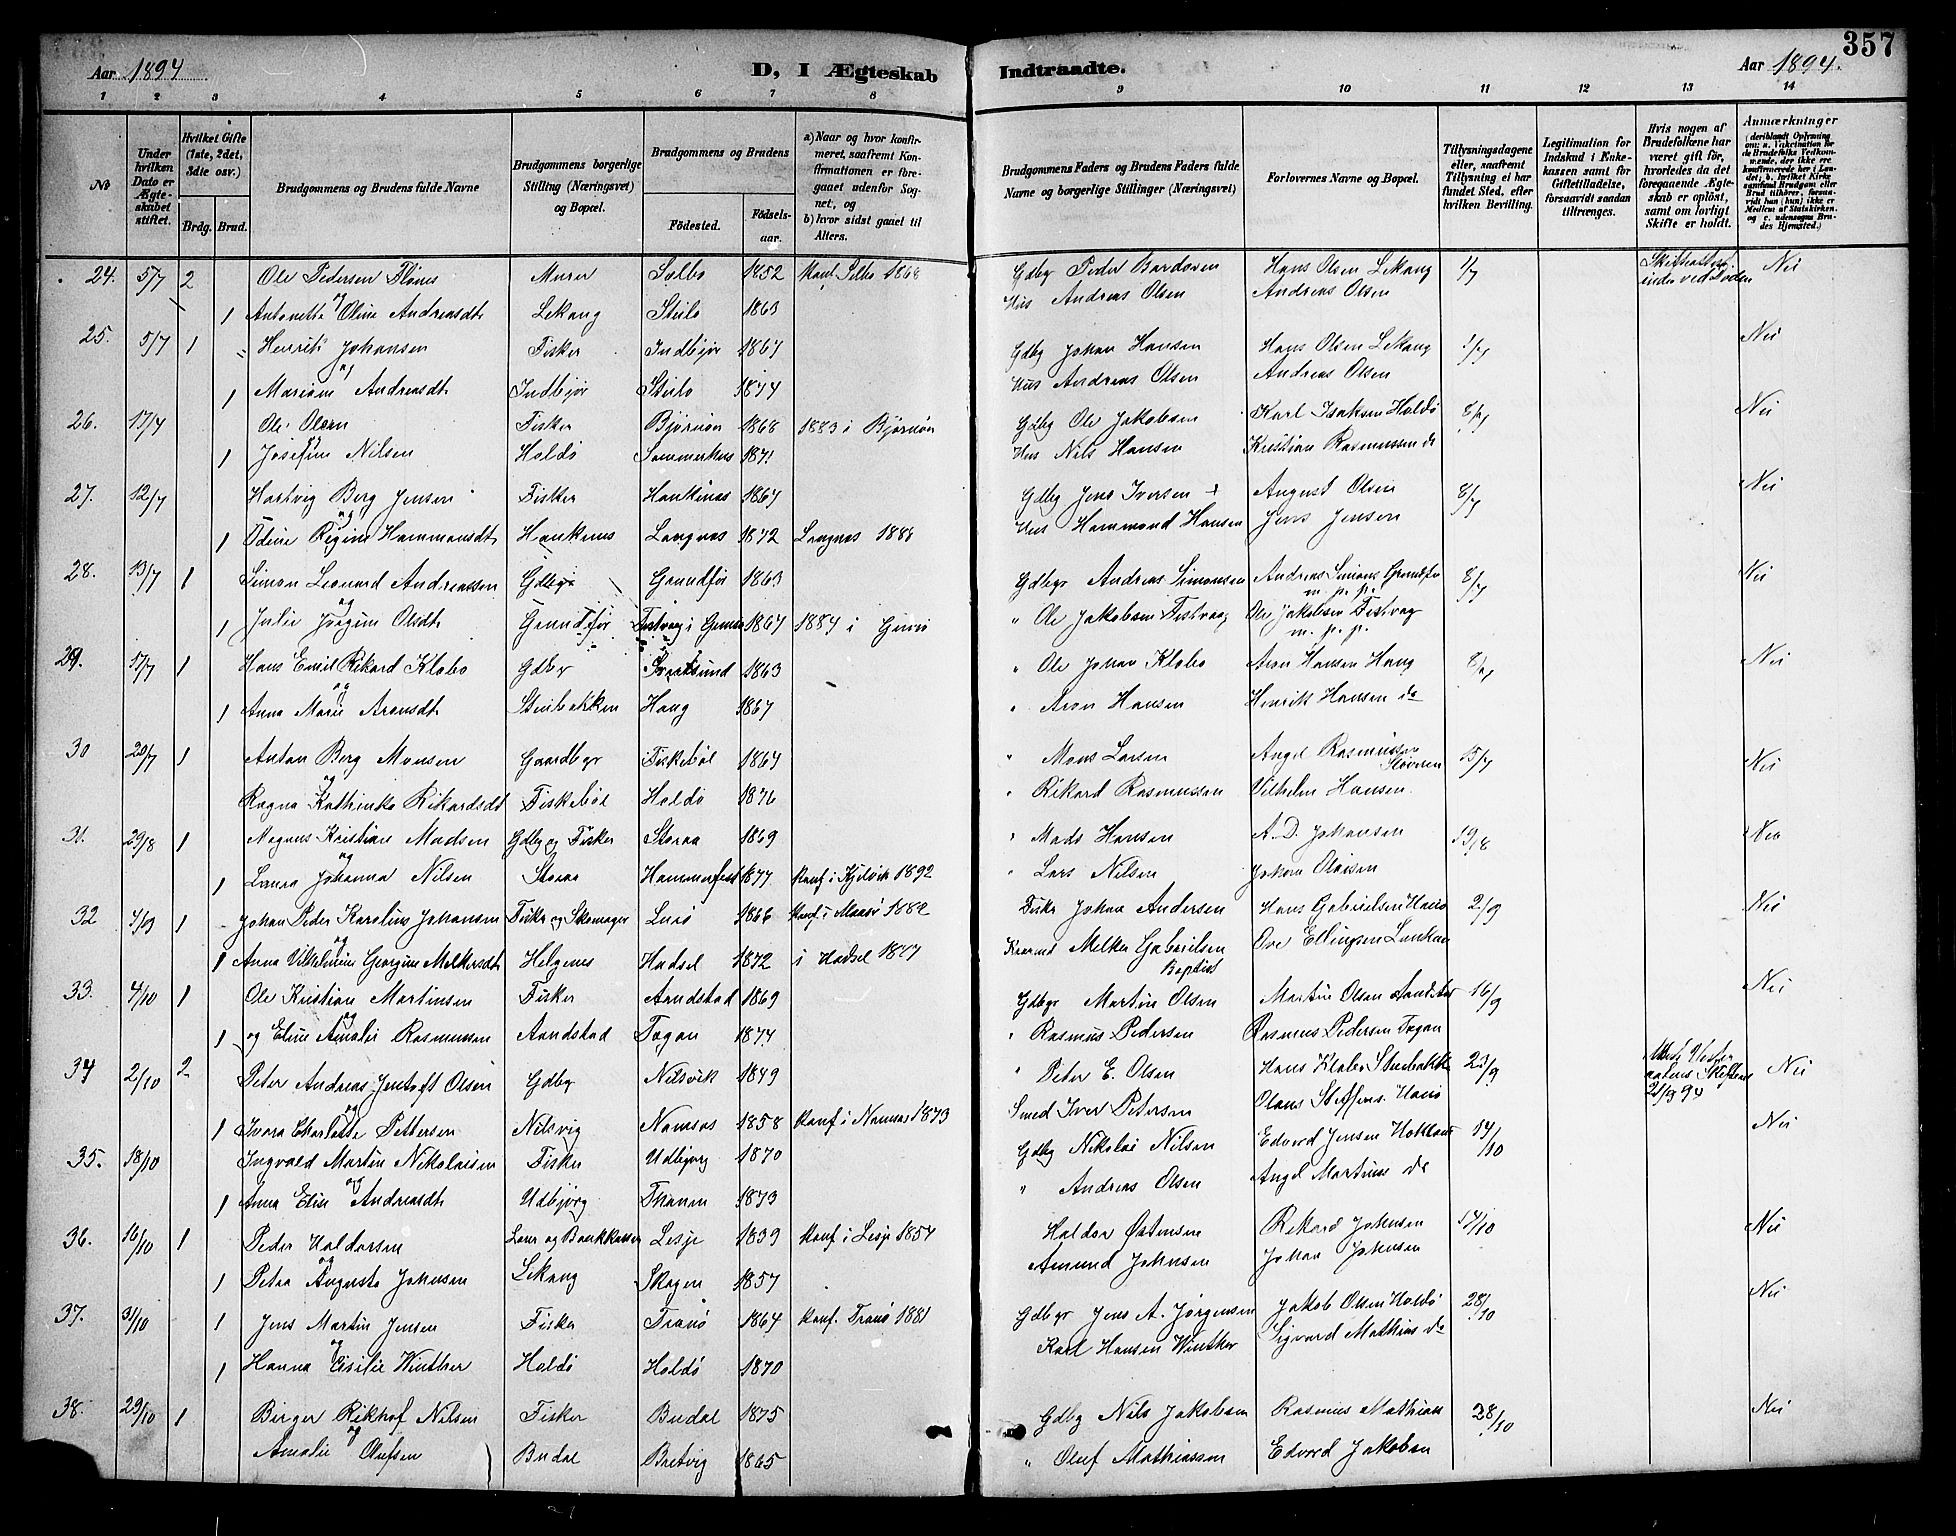 357
Aar 1894
D, I Ægteskab
Indtraadte.
Aar 1894.
1 2 3 4 5 6 7 8 9 10 11 12 13 14
No
Under hvilken Dato er Ægteskabet stiftet.
Hvilket Gifte (1ste, 2det, 3die osv.)
Brdg. Brud.
Brudgommens og Brudens fulde Navne
Brudgommens borgerlige Stilling (Næringsvei) og Bopæl.
Brudgommens og Brudens
Fødested.
Fødselsaar.
a) Naar og hvor konfirmeret, saafremt Konfirmationen er foregaaet udenfor Sognet, og
b) hvor sidst gaaet til Alters.
Brudgommens Faders og Brudens Faders fulde Navne og borgerlige Stillinger (Næringsvei)
Forlovernes Navne og Bopæl.
Tillysningsdagene eller, saafremt Tillysning ei har fundet Sted, efter hvilken Bevilling.
Legitimation for Indskud i Enkekassen samt for Giftetilladelse, forsaavidt saadan tiltrænges.
Hvis nogen af Brudefolkene har været gift før, hvorledes da det foregaaende Ægteskab er opløst, samt om lovligt Skifte er holdt.
Anmærkninger
24. 5/7 2 Ole Pedersen Flønes Murer Selbo 1852 Konf. Selbo 1868 Gdbr Peder Bardosen Hans Olsen Lekang 1/7 Nei
og
1 Antonette Oline Andreasdt. Lekang Steilo 1863 Hus Andreas Olsen Andreas Olsen
25. 5/7 1 Henrik Johansen Fisker Indbjør 1867 Gdbg Johan Hansen Hans Olsen Lekang 1/7 Nei
og
1 Mariane Andreasdt. Indbjør Steilo 1874 Hus Andreas Olsen Andreas Olsen
26. 17/7 Ole Olsen Fisker Bjørnøn 1868 1883 i Bjørnøn Gdbg Ole Jakobsen Karl Isaksen Holdø 8/7 Nei
1 Josefine Nilsen Holdø Sommerhus 1871 Hus Nils Hansen Kristian Rasmussen do
27. 12/7 Hartvig Berg Jensen Fisker Hanknes 1867 Gdbg Jens Iversen August Olsen 8/7 Nei
og
1 Odine Regine Hammondsdt. Hanknes Langnes 1872 Langnes 1888 Hus Hammond Hansen Jens Jensen
28. 13/7 1 Simon Leonard Andreassen Gdbgr Grundfør 1863 Gdbgr Andreas Simonsen Andreas Simons Grundfør 8/7 Nei
og m. p. p.
1 Julie Jørgine Olsdt. Grundfør 1867 1884 i " Ole Jakobsen Fistvaag Ole Jakobsen Fistvag
m. p. p.
29. 17/7 1 Hans Emil Rikard Klabo Gdbgr 1863 " Ole Johan Klabo Aron Hansen Haug 8/7 Nei
og
1 Anna Marie Aronsdt. Steilbakken Haug 1867 " Aron Hansen Henrik Hansen do
30 20/7 1 Anton Berg Monsen Gaardbgr Fiskebøl 1864 " Mons Larsen Angel Rasmussen 15/7 Nei
og
Ragna Kathinka Rikardsdt Fiskebøl Holdø 1876 " Rikard Rasmussen Vilhelm Hansen
31. 29/8 1 Magnus Kristian Madsen Gdbg og Fisker Storaa 1869 " Mads Hansen A. D. Johansen 19/8 Nei
og
1 Laura Johanna Nilsen Storaa Hammerfest 1877 Konf i Kjelvik 1892 " Lars Nilsen Johan Olaisen
32 4/9 1 Johan Peder Karolius Johansen Fisker og Skomager Lurø 1866 Konf. i Maasø 1882 Fisker Johan Andersen Hans Gabrielsen 2/9 Nei
og
1 Anna Vilhelmine Georgine Melkersdt Helgenes Hadsel 1872 i Hadsel 1877 Melker Gabrielsen Ove Ellingsen
Baptist
33. 4/10 1 Ole Kristian Martinsen Fisker Arndstad 1869 Gdbgr Martin Olsen Martin Olsen 16/9 Nei
og
1 og Eline Amalie Rasmussen Aandstad Togan 1874 " Rasmus Pedersen Rasmus Pedersen Togan
34 2/10 2 Peter Andreas Jentoft Olsen Gdbg Nilsvik 1849 " Peter E. Olsen Hans Klabo Steilbakke 23/9 Nei
og
1 Ivara Charlotte Pettersen Nilsvig Namsos 1858 Konf i Namsos 1873 Smed Iver Petersen Olaus Steffens. Nei
35. 18/10 Ingvald Martin Nikolaisen Fisker Udbjørg 1870 Gdbg Nikolai Nilsen Edvard Jensen 14/10
og
1 Anna Elise Andreasdt. Udbjørg Thann 1873 " Andreas Olsen Angel Martinse do
36. 16/10 1 Peder Haldorsen og Bankkasser Lesje 1839 Konf i Lesje 1854 Haldor Østensen Rikard Johnsen 14/10 Nei
og
1 Petra Augusta Johnsen Lekang Skagen 1857 Amund Johnsen Johan Johnsen
37. 31/10 1 Jens Martin Jensen Fisker Tranø 1864 Konf. Tranø 1881 Gdbgr Jens A. Jørgensen Jakob Olsen Holdø 28/10 Nei
og
1 Hanna Cisilie Winther Holdø Holdø 1870 Karl Hansen Winther Sigvard Mathias do
38. 29/10 1 Birger Rikhof Nilsen Fisker Budal 1875 Gdbg Nils Jakobsen Rasmus Mathias 28/10 Nei
og
Amalie Olufsen Budal Bretvig 1865 " Oluf Mathiassen Edvard Jakobsen